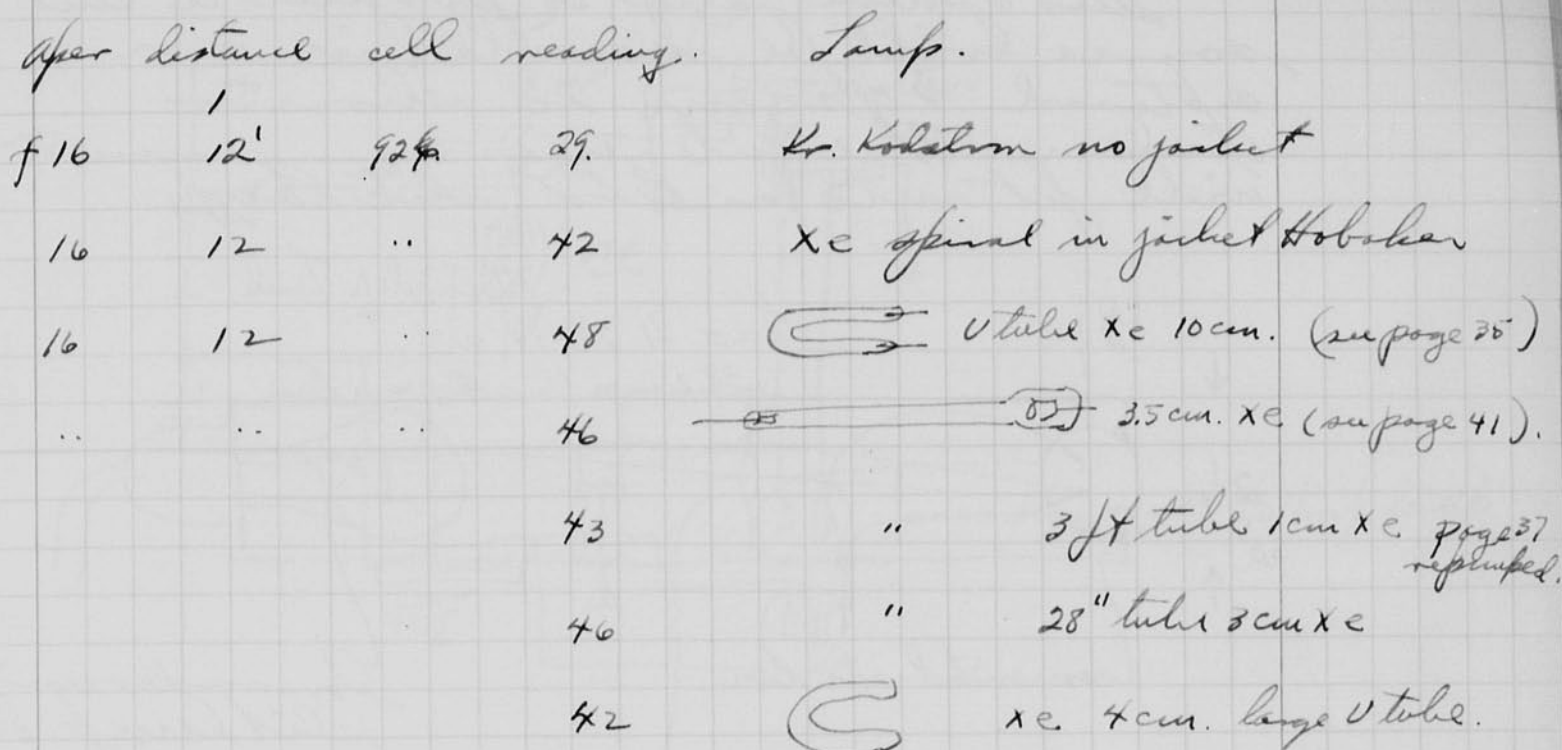 aper distance cell reading. Lamp.
f 16 12' 29. Kr. Kodatron no jacket
16 12 " 42 Xe spiral in jacket Hoboken
16 12 " 48 U tube Xe 10 cm. (see page 35)
" " " 46 3.5 cm. Xe (see page 41).
43 " 3 ft tube 1 cm Xe page 37
repumped.
46 " 28" tube 3 cm Xe
42 Xe 4 cm. large U tube.